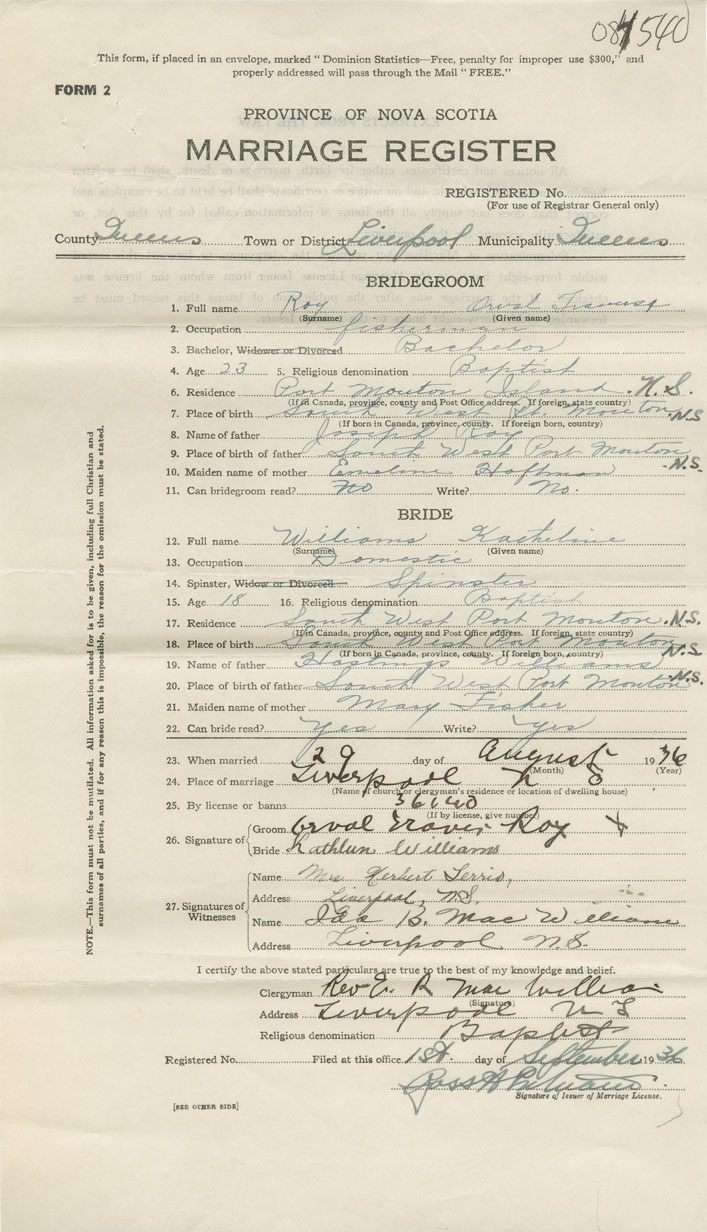 081540
This form, if placed in an envelope, marked "Dominion Statistics—Free, penalty for improper use $300," and
properly addressed will pass through the Mail "FREE."
FORM 2
PROVINCE OF NOVA SCOTIA
MARRIAGE REGISTER
REGISTERED No.
(For use of Registrar General only)
County Queens Town or District Liverpool Municipality Queens
BRIDEGROOM
1. Full name Roy Orval
(Surname) (Given name)
2. Occupation fisherman
3. Bachelor, Widower or Divorced Bachelor
4. Age 23 5. Religious denomination Baptist
6. Residence Port Mouton Island. N.S.
(If in Canada, province, county and Post Office address. If foreign, state country)
7. Place of birth South West Pt. Mouton N.S
(If born in Canada, province, county. If foreign born, country)
8. Name of father Joseph Roy
9. Place of birth of father South West Port Mouton
10. Maiden name of mother Emeline Hoffman N.S.
11. Can bridegroom read? No Write? No.
BRIDE
12. Full name Williams Katheline
(Surname) (Given name)
13. Occupation Domestic
14. Spinster, Widow or Divorced Spinster
15. Age 18 16. Religious denomination Baptist
17. Residence South West Port Mouton. N.S.
(If in Canada, province, county and Post Office address. If foreign, state country)
18. Place of birth South West Port Mouton N.S.
(If born in Canada, province, county. If foreign born, country)
19. Name of father Hastings Williams
20. Place of birth of father South West Port Mouton N.S.
21. Maiden name of mother Mary Fisher
22. Can bride read? Yes Write? Yes
23. When married 29 day of August 1936
(Month) (Year)
24. Place of marriage Liverpool N S
(Name of church or clergyman's residence or location of dwelling house)
25. By license or banns 36140
(If by license, give number)
26. Signature of Groom Orval Travis Roy X
Bride Kathlun Williams
27. Signatures of Witnesses
Name Mrs Herbert
Address Liverpool, N.S.
Name Ida B. Mac William
Address Liverpool N.S.
I certify the above stated particulars are true to the best of my knowledge and belief.
Clergyman Rev E. R Mac William
(Signature)
Address Liverpool N S
Religious denomination Baptist
Registered No. Filed at this office 1st. day of September 1936
Signature of Issuer of Marriage License.
[SEE OTHER SIDE]
NOTE.—This form must not be mutilated. All information asked for is to be given, including full Christian and
surnames of all parties, and if for any reason this is impossible, the reason for the omission must be stated.